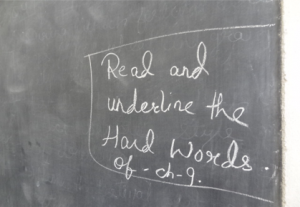 Read and
underline the
Hard Words.
of - ch - 9.